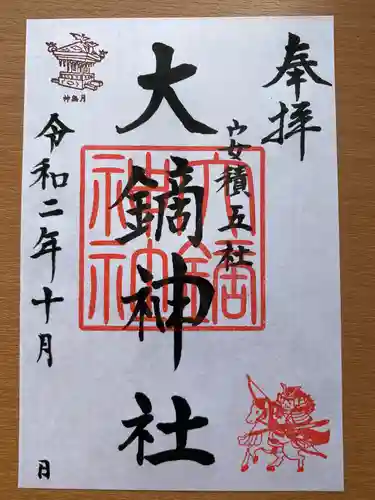 奉拝
安積五社
大鏑神社
大鏑神社
神無月
令和二年十月 日